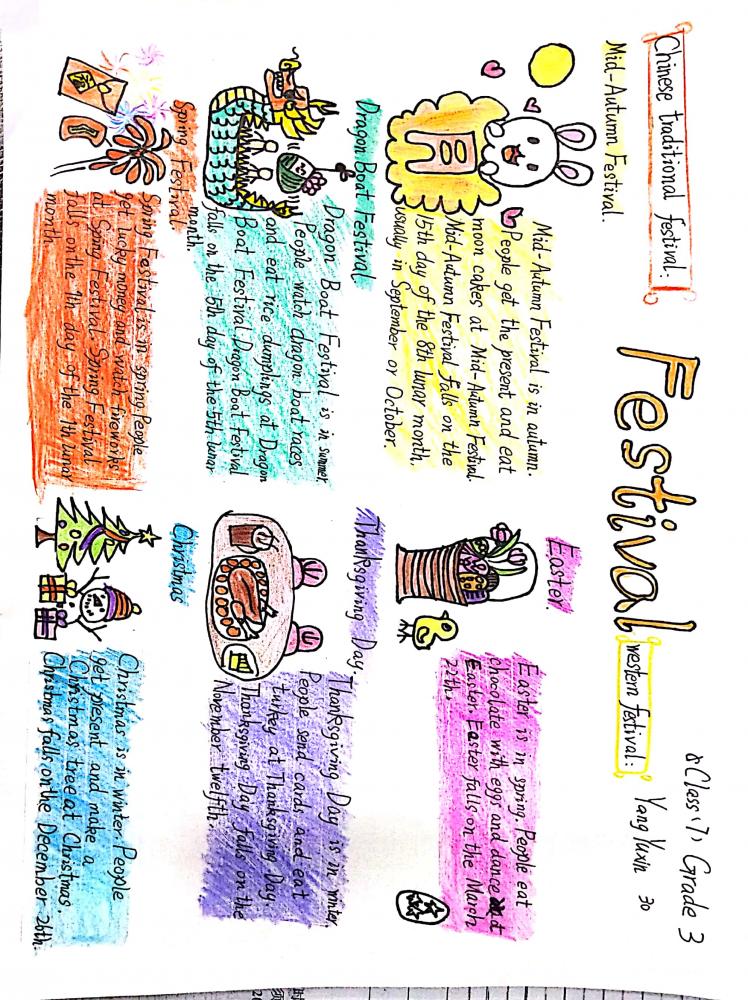 Class(7) Grade 3
Yang Yuxin 30
Festival
Chinese traditional festival:
Mid-Autumn Festival.
Mid-Autumn Festival is in autumn.
People get the present and eat
moon cakes at Mid-Autumn Festival.
Mid-Autumn Festival falls on the
15th day of the 8th lunar month,
usually in September or October.
Dragon Boat Festival
Dragon Boat Festival is in summer.
People watch dragon boat races
and eat rice dumplings at Dragon
Boat Festival. Dragon Boat Festival
falls on the 5th day of the 5th lunar
month.
Spring Festival
Spring Festival is in spring. People
get lucky money and watch fireworks
at Spring Festival. Spring Festival
falls on the 1th day of the 1th lunar
month.
western festival:
Easter.
Easter is in spring. People eat
chocolate with eggs and dance at
Easter. Easter falls on the March
22th.
Thanksgiving Day.
Thanksgiving Day is in winter.
People send cards and eat
turkey at Thanksgiving Day.
Thanksgiving Day falls on the
November twelfth.
Christmas
Christmas is in winter. People
get present and make a
Christmas tree at Christmas.
Christmas falls on the December 26th.